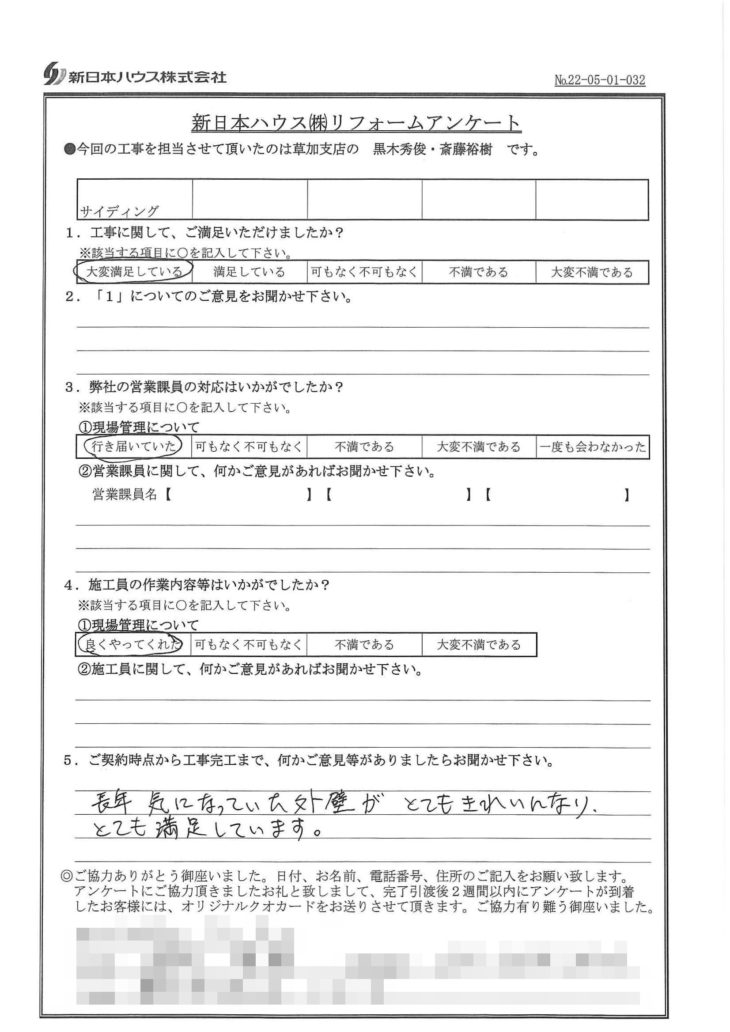 新日本ハウス株式会社
№22-05-01-032
新日本ハウス㈱リフォームアンケート
●今回の工事を担当させて頂いたのは草加支店の 黒木秀俊・斎藤裕樹 です。
サイディング
1．工事に関して、ご満足いただけましたか？
※該当する項目に○を記入して下さい。
大変満足している 満足している 可もなく不可もなく 不満である 大変不満である
2．「1」についてのご意見をお聞かせ下さい。
3．弊社の営業課員の対応はいかがでしたか？
※該当する項目に○を記入して下さい。
①現場管理について
行き届いていた 可もなく不可もなく 不満である 大変不満である 一度も会わなかった
②営業課員に関して、何かご意見があればお聞かせ下さい。
営業課員名【 】【 】【 】
4．施工員の作業内容等はいかがでしたか？
※該当する項目に○を記入して下さい。
①現場管理について
良くやってくれた 可もなく不可もなく 不満である 大変不満である
②施工員に関して、何かご意見があればお聞かせ下さい。
5．ご契約時点から工事完工まで、何かご意見等がありましたらお聞かせ下さい。
長年 気になっていた外壁が とてもきれいになり、
とても満足しています。
◎ご協力ありがとう御座いました。日付、お名前、電話番号、住所のご記入をお願い致します。
アンケートにご協力頂きましたお礼と致しまして、完了引渡後2週間以内にアンケートが到着
したお客様には、オリジナルクオカードをお送りさせて頂きます。ご協力有り難う御座いました。